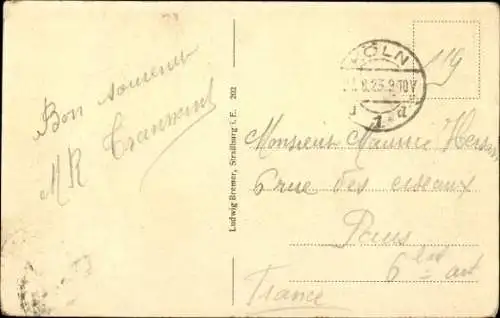 Bon souvenir
MR
Ludwig Bremer, Straßburg i. E. 202
CÖLN
8.23.9-10V
1 d
119
Monsieur Maurice
6 rue des ciseaux
Paris
6
France